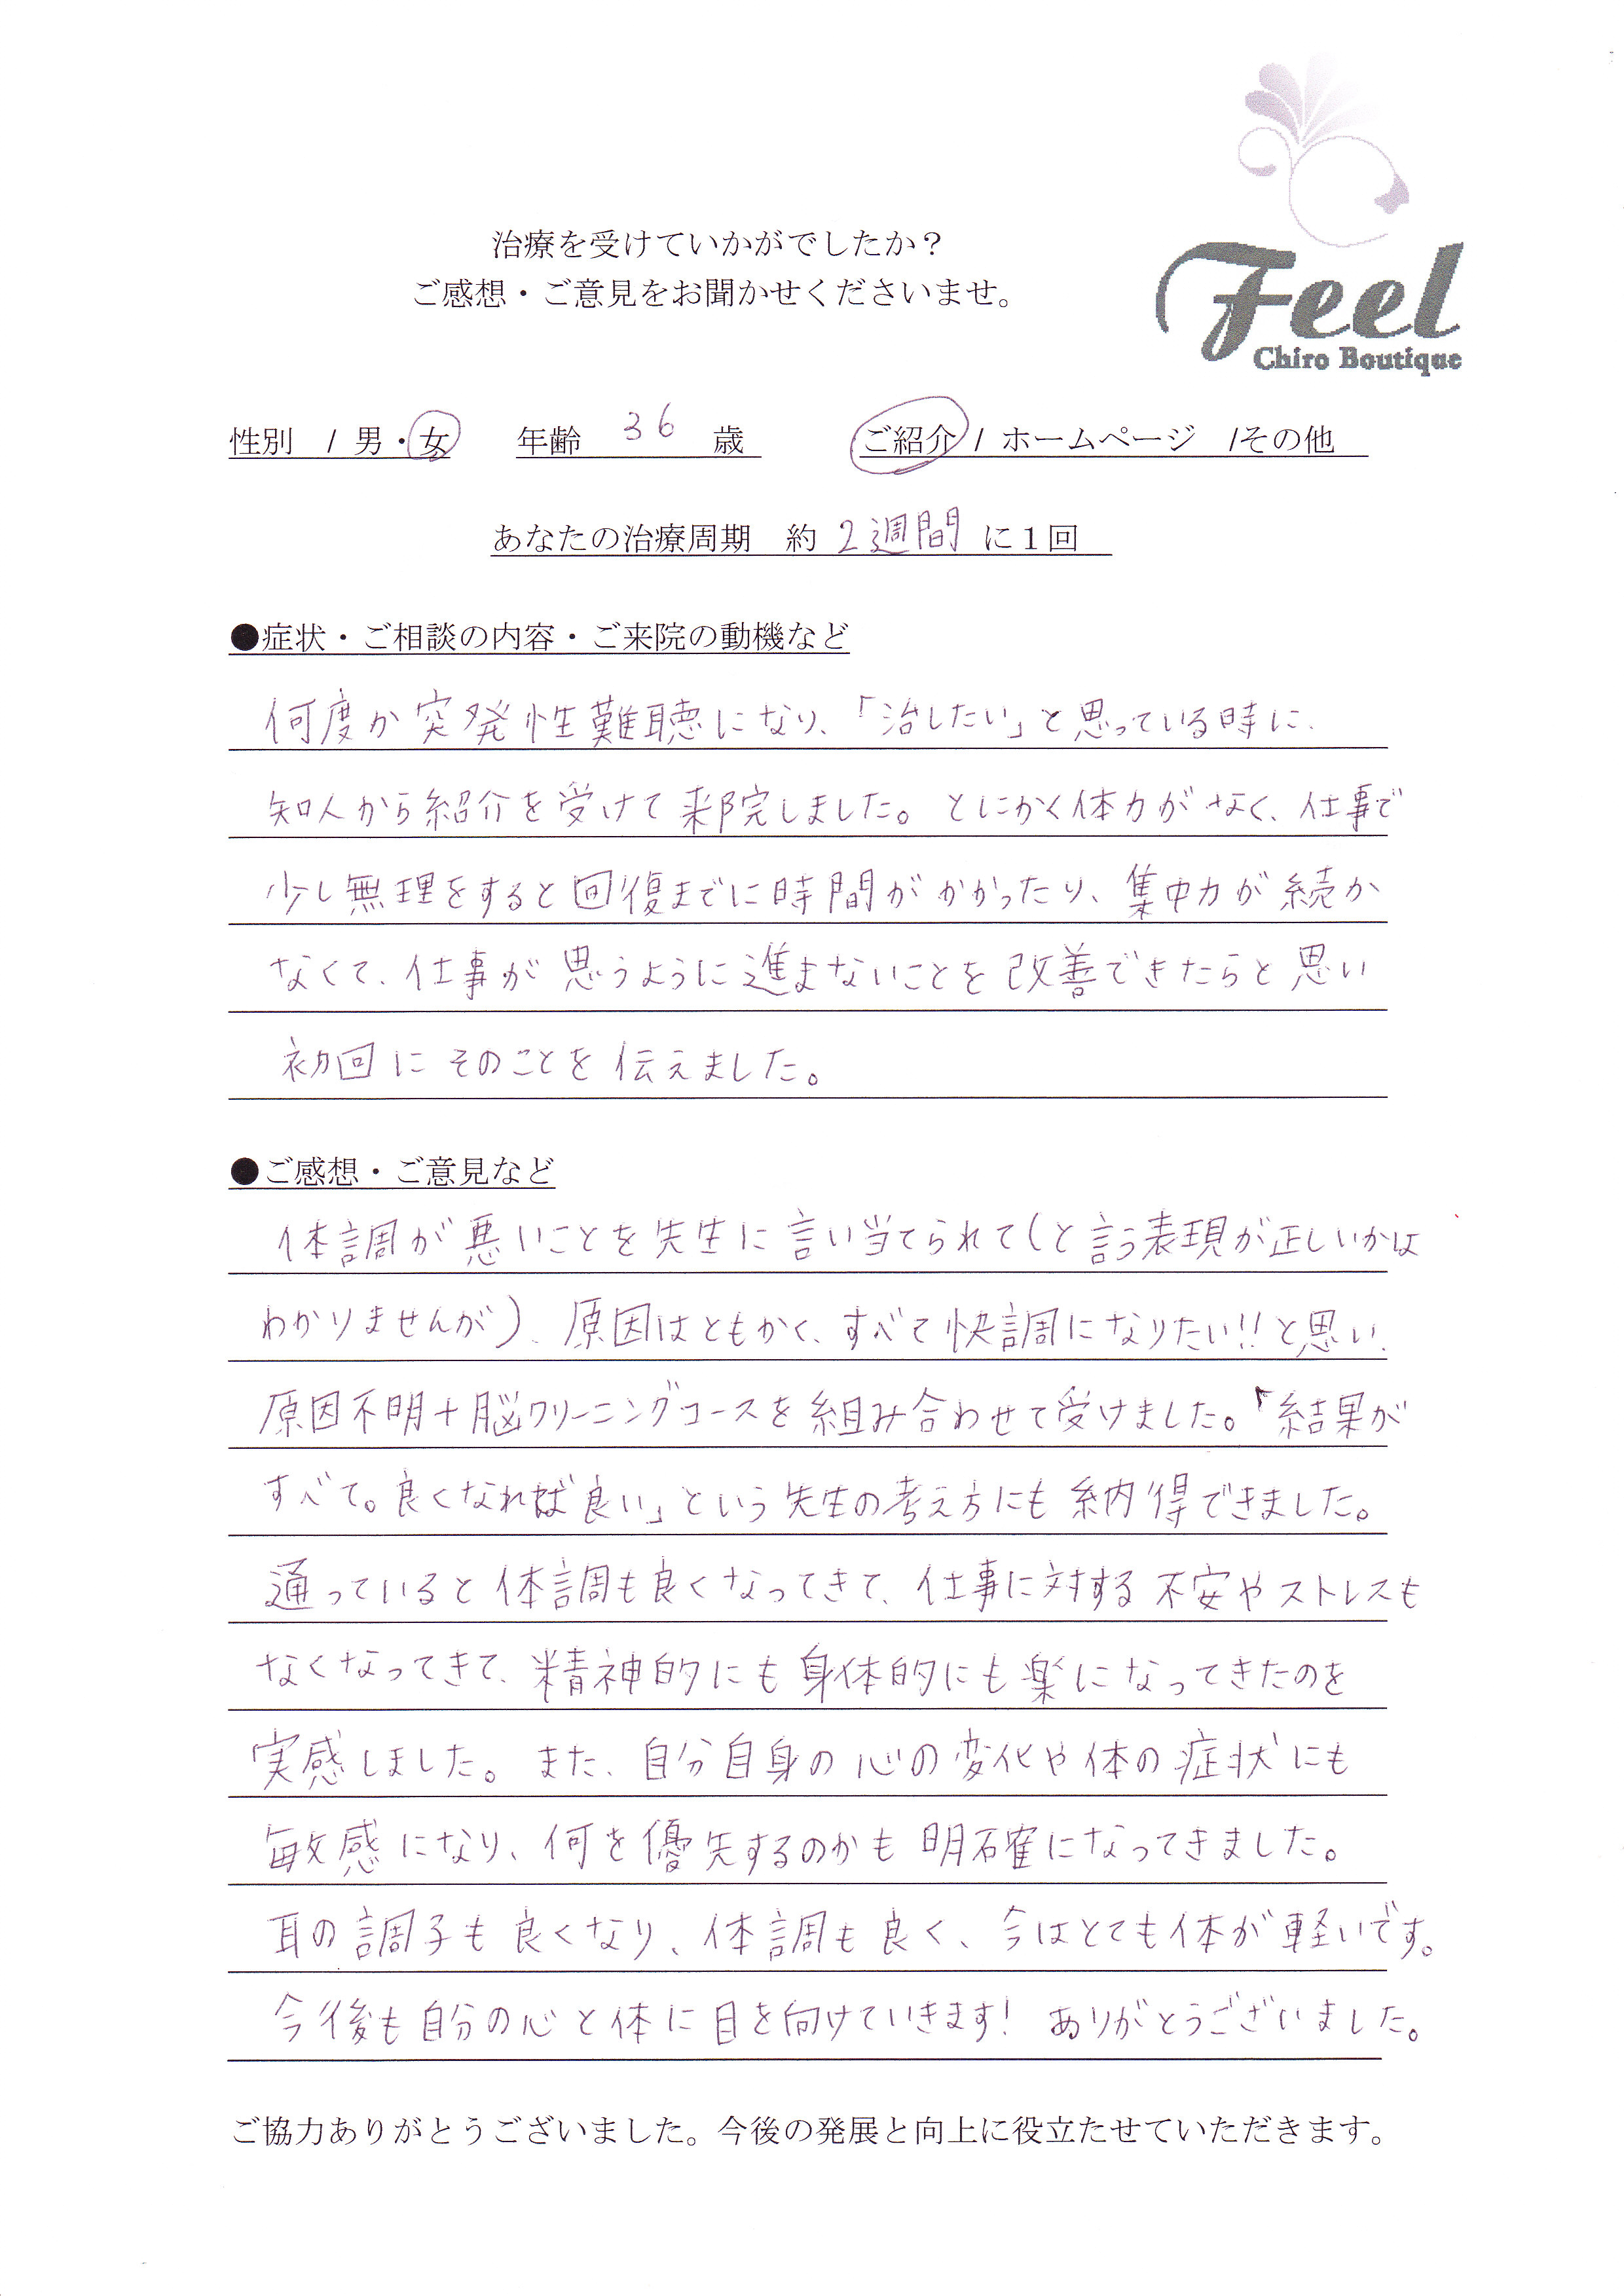 Feel
Chiro Boutique
治療を受けていかがでしたか？
ご感想・ご意見をお聞かせくださいませ。
性別 / 男・女 年齢 36 歳 ご紹介 / ホームページ /その他
あなたの治療周期 約 2週間 に１回
●症状・ご相談の内容・ご来院の動機など
何度か突発性難聴になり、「治したい」と思っている時に、
知人から紹介を受けて来院しました。とにかく体力がなく、仕事で
少し無理をすると回復までに時間がかかったり、集中力が続か
なくて、仕事が思うように進まないことを改善できたらと思い
初回にそのことを伝えました。
●ご感想・ご意見など
体調が悪いことを先生に言い当てられて（と言う表現が正しいかは
わかりませんが）、原因はともかく、すべて快調になりたい!!と思い、
原因不明＋脳クリーニングコースを組み合わせて受けました。「結果が
すべて。良くなれば良い」という先生の考え方にも納得できました。
通っていると体調も良くなってきて、仕事に対する不安やストレスも
なくなってきて、精神的にも身体的にも楽になってきたのを
実感しました。また、自分自身の心の変化や体の症状にも
敏感になり、何を優先するのかも明確になってきました。
耳の調子も良くなり、体調も良く、今はとても体が軽いです。
今後も自分の心と体に目を向けていきます！ありがとうございました。
ご協力ありがとうございました。今後の発展と向上に役立たせていただきます。